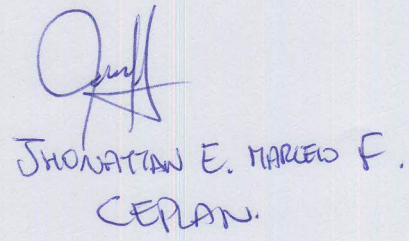 JHONATTAN E. MARCELO F.
CEPLAN.